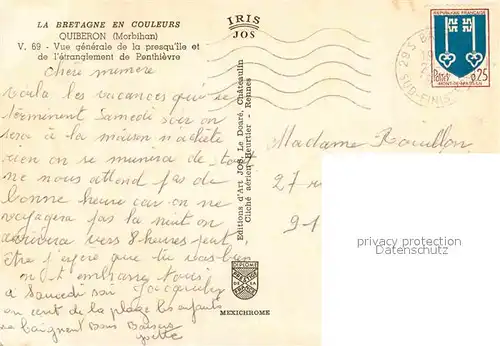 LA BRETAGNE EN COULEURS
QUIBERON (Morbihan)
V. 69 - Vue générale de la presqu'île et
de l'étranglement de Penthièvre
IRIS
JOS
REPUBLIQUE FRANÇAISE
Postes 0,25
MONT-DE-MARSAN
SUD-FINIS
chère mémère
voila les vacances qui se
terminent Samedi soir on
sera à la maison n'achète
rien on se munira de tout
ne nous attend pas de
bonne heure car on ne
voyagera pas la nuit on
arrivera vers 8 heures peut
être j'espère que tu vas bien
on t'embrasse tous
à Samedi soir Jacqueline
on sent de la plage les enfants
se baignent Bons Baisers
Yvette
Editions d'Art JOS Le Doaré, Châteaulin
Cliché aérien Heurtier - Rennes
Madame Rouillon
27
91
DIPLOME
PRESTIGE DE LA FRANCE
MEXICHROME
privacy protection
Datenschutz